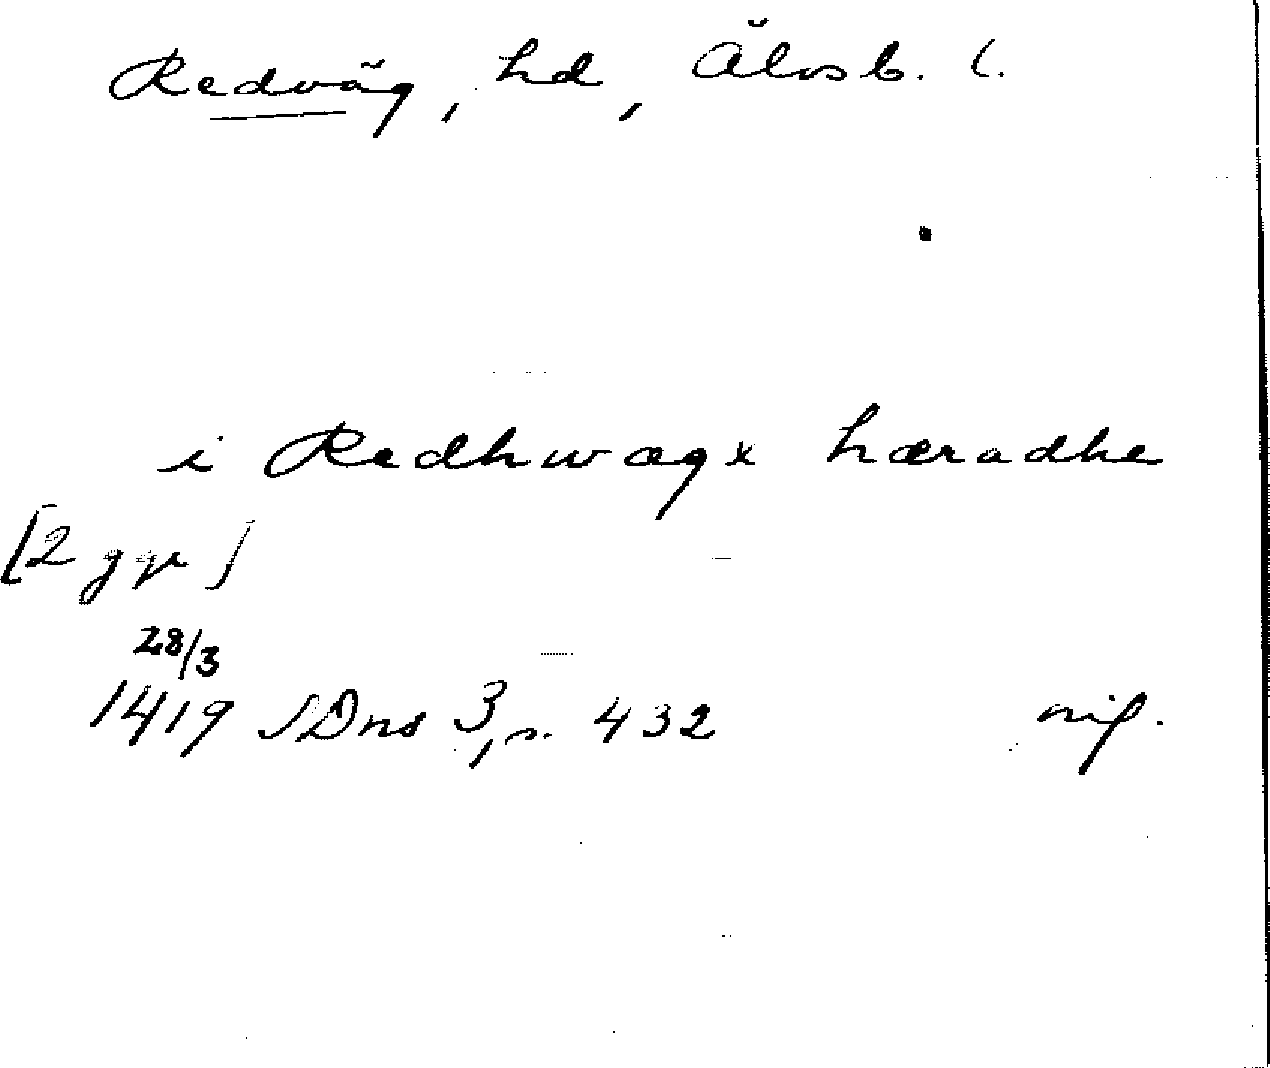 Redväg, hd, Älvsb. l.
i Redhwægx hæradhe
[2 ggr]
28/3
1419 SDns 3, s. 432 orig.